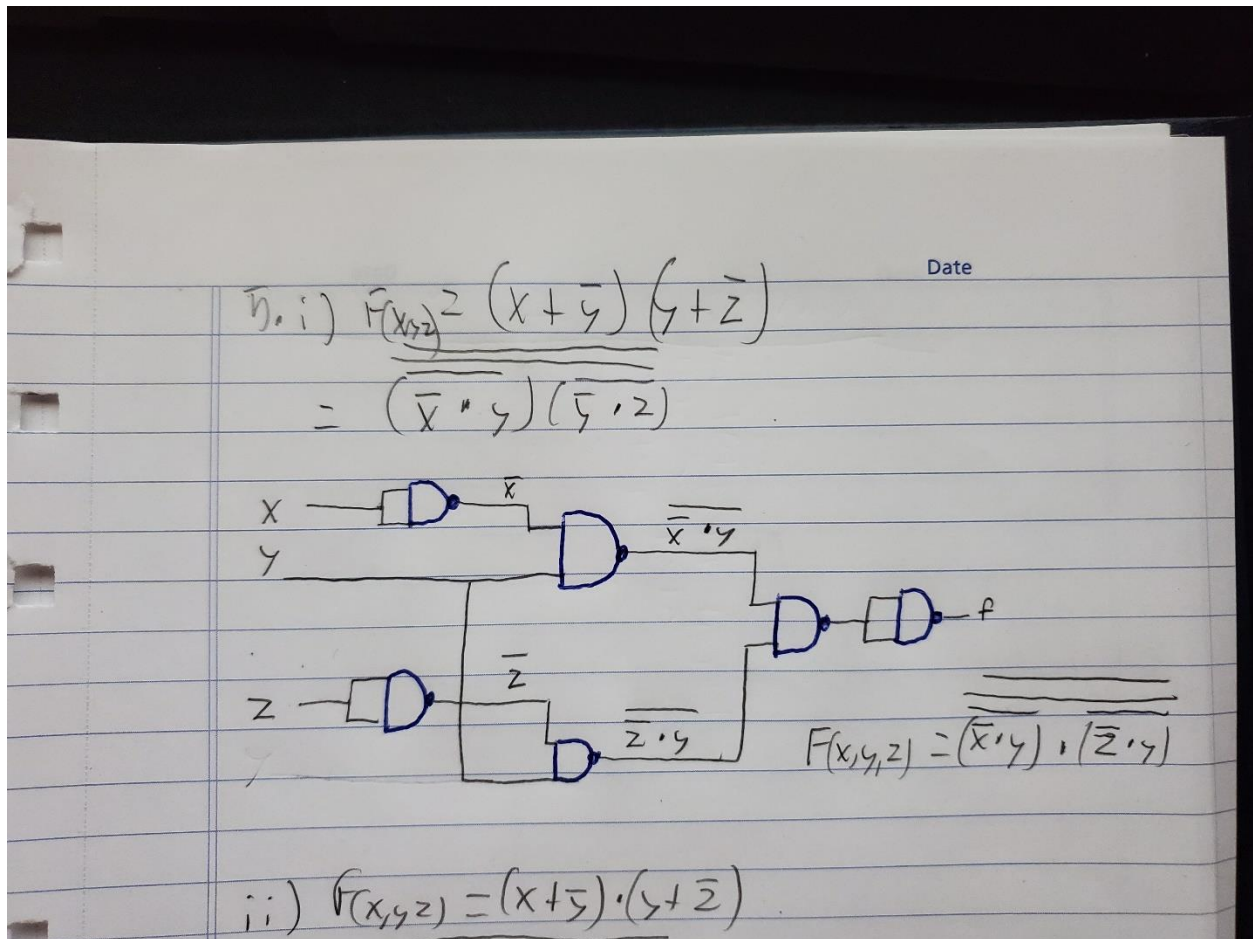 Date
5. i) F(x,y,z) = (x + y̅) (y + z̅)
= \overline{\overline{\overline{(x̅ · y)} \overline{(y̅ · z)}}}
x x̅
\overline{x̅ · y}
y
f
z z̅
\overline{z̅ · y}
F(x,y,z) = \overline{\overline{\overline{(x̅ · y)} · \overline{(z̅ · y)}}}
y
ii) F(x,y z) = (x + y̅) · (y + z̅)